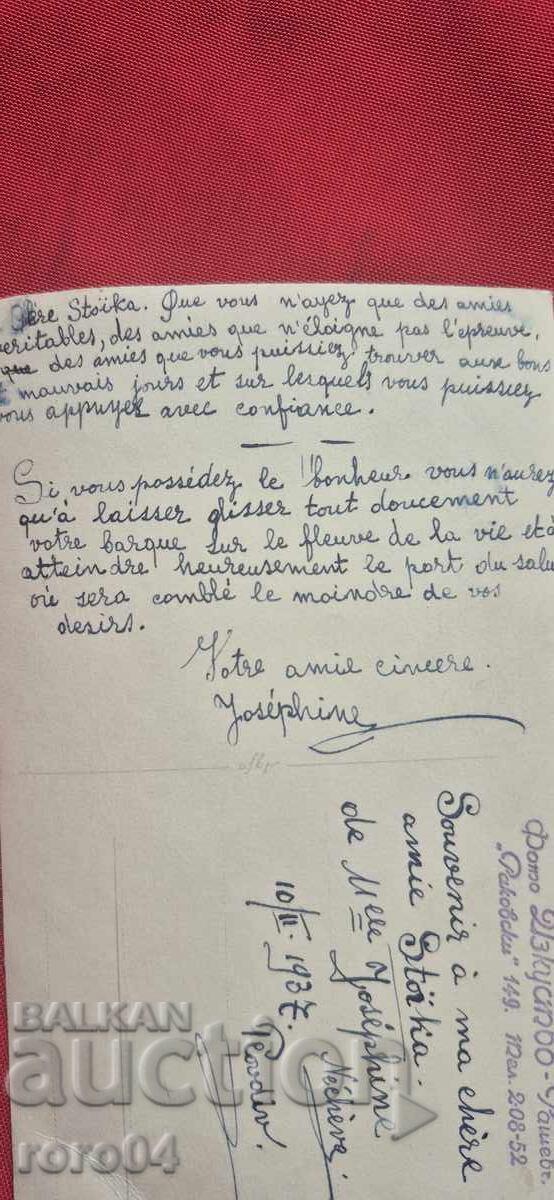 Chère Stoïka. Que vous n'ayez que des amies
veritables, des amies que n'éloigne pas l'epreuve,
que des amies que vous puissiez trouver aux bons
et mauvais jours et sur lesquels vous puissiez
vous appuyer avec confiance.
Si vous possédez le bonheur vous n'aurez
qu'à laisser glisser tout doucement
votre barque sur le fleuve de la vie et à
atteindre heureusement le port du salu
où sera comblé le moindre de vos
desirs.
Votre amie cincere.
Joséphine
Souvenir à ma chère
amie Stoïka.
de Mlle Joséphine
Nécheve
10/II. 1937.
Пловдив.
Фото Изкуство - Рашев.
"Раковски" 149. тел. 208-52
BALKAN
auction
roro04